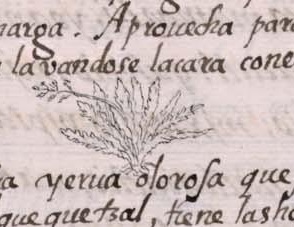 marga. Aprouecha para
lavandose la cara con e
yerua olorosa que
que quetzal, tiene las ho